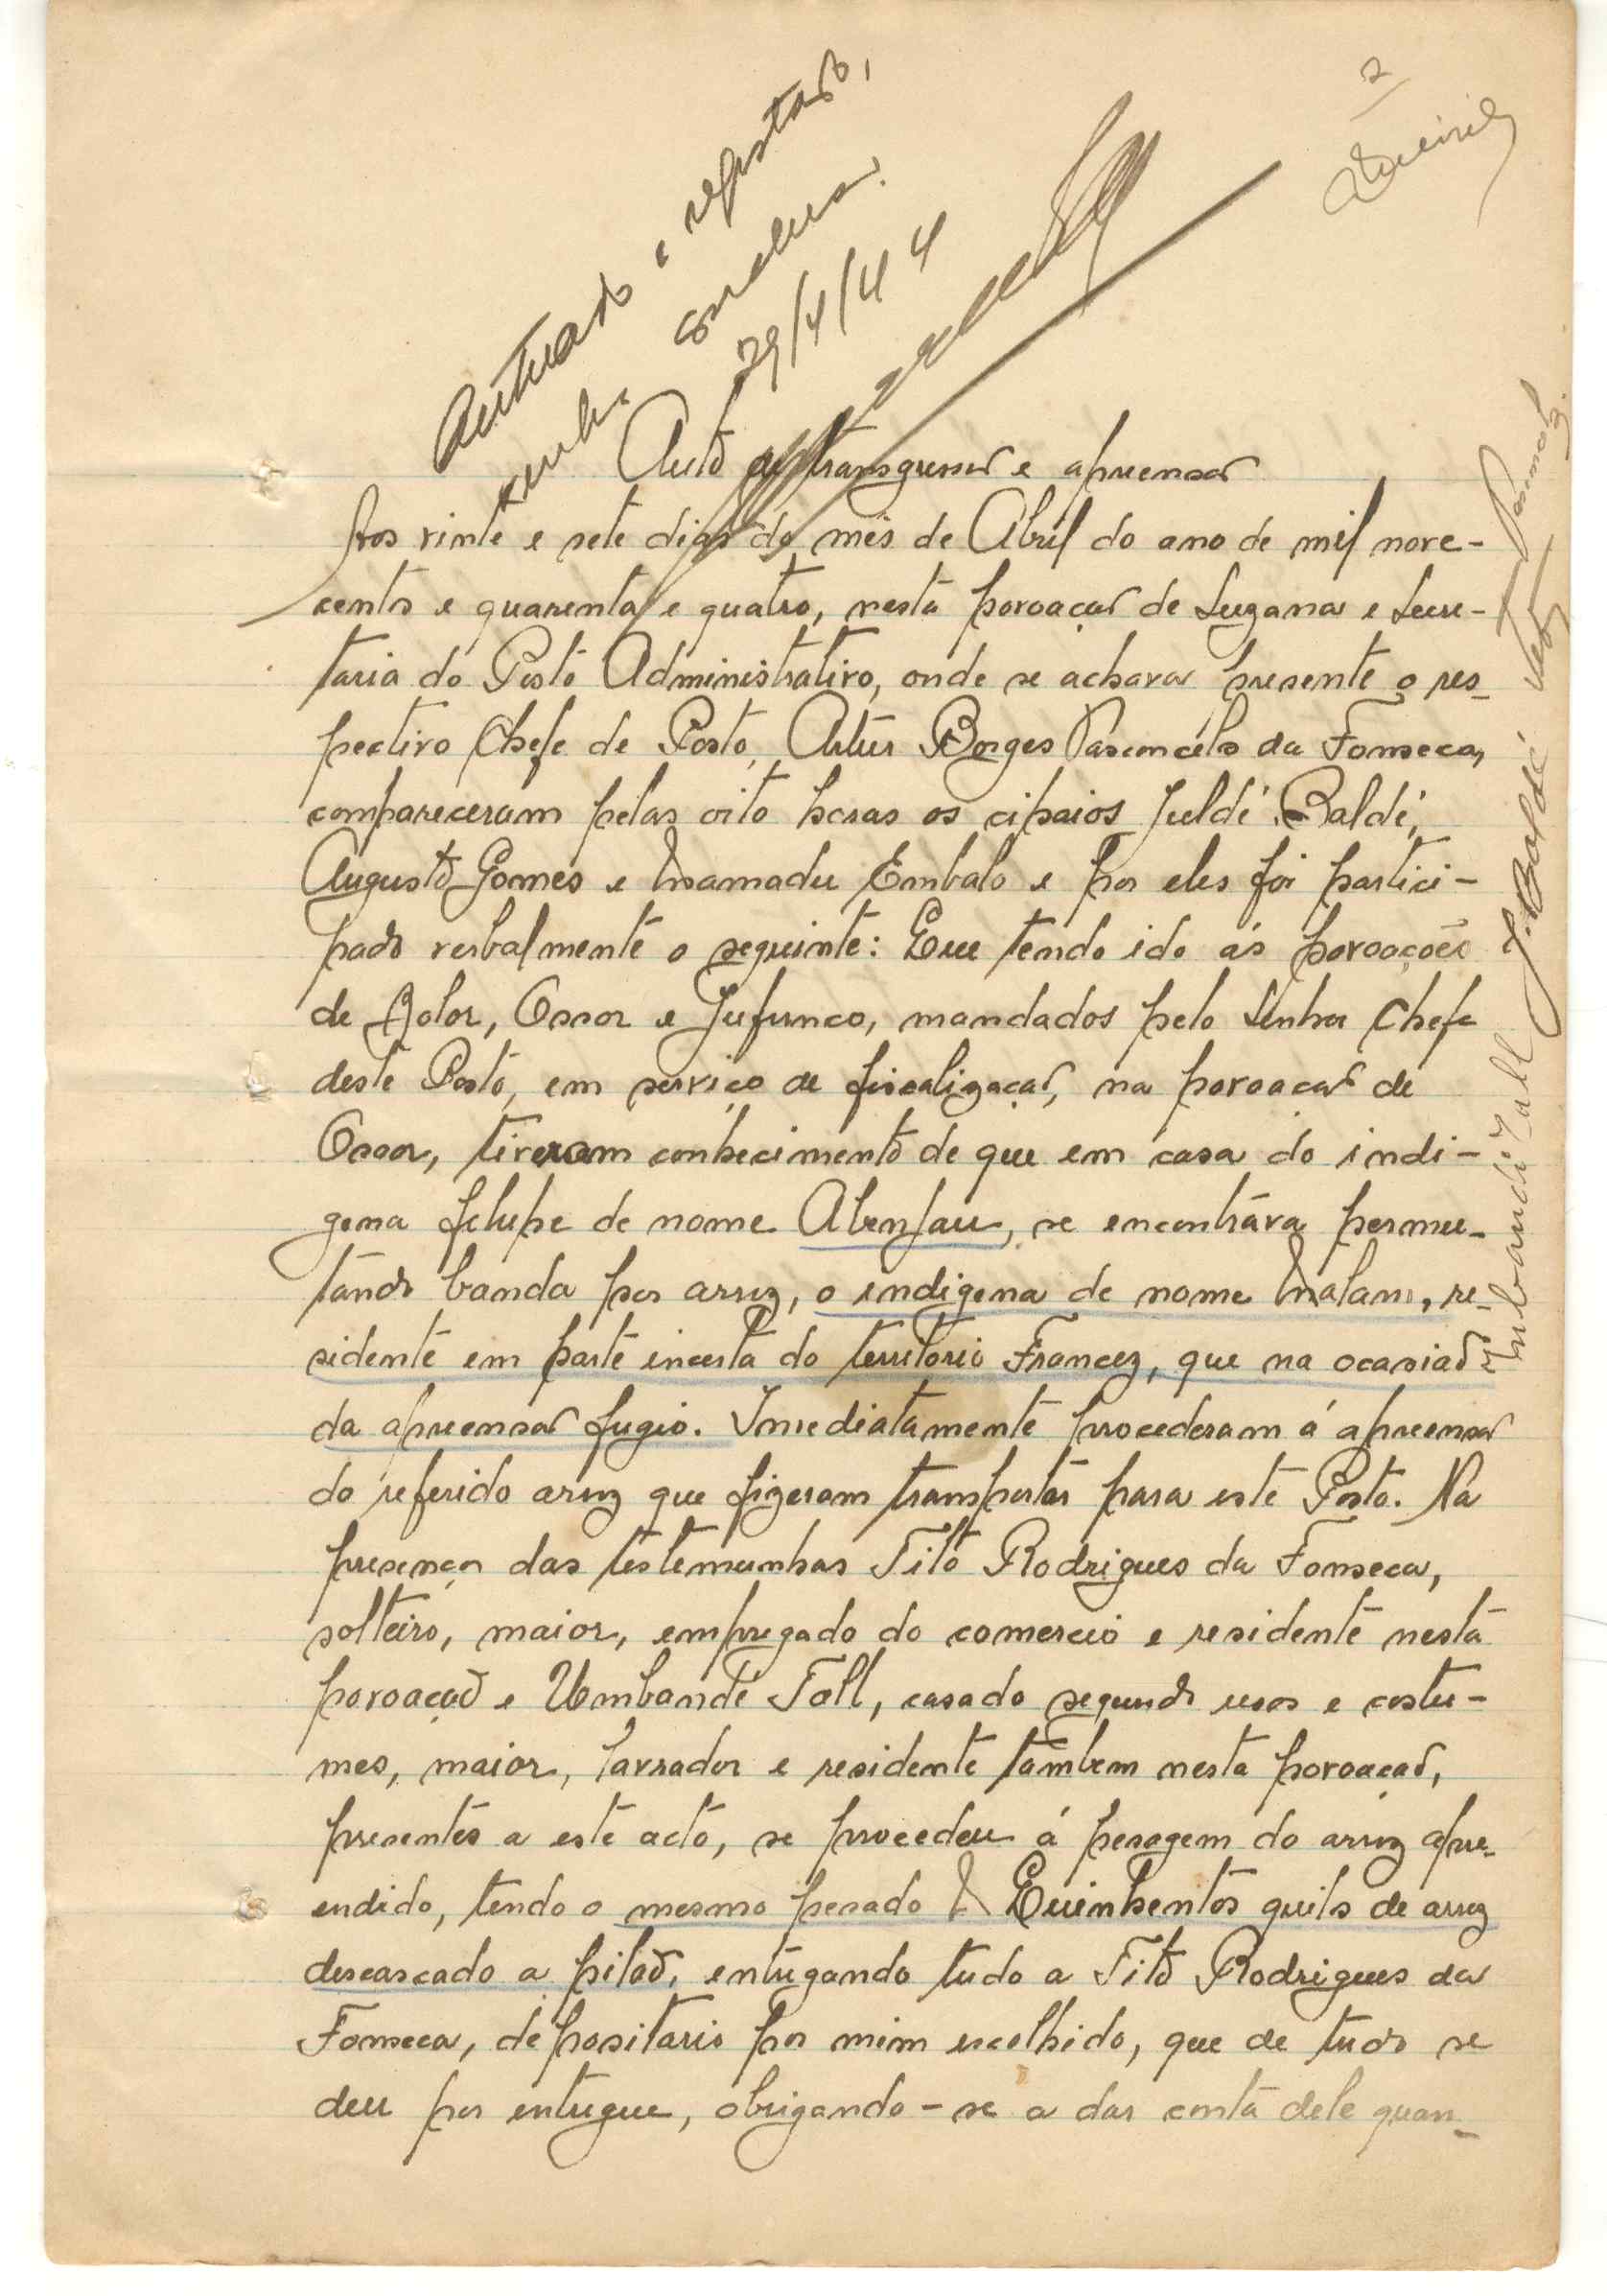 2
Autuado e registado,
29/4/44
Auto de transgressão e apreensão
Aos vinte e sete dias do mês de Abril do ano de mil nove-
centos e quarenta e quatro, nesta povoação de Suzana e Secre-
taria do Posto Administrativo, onde se achava presente o res-
pectivo Chefe de Posto, Artur Borges Vasconcelos da Fonseca,
compareceram pelas oito horas os cipaios Juldé Baldé,
Augusto Gomes e Mamadu Embalo e por eles foi partici-
pado verbalmente o seguinte: Que tendo ido ás povoações
de Bolor, Ossor e Jufunco, mandados pelo Senhor Chefe
deste Posto, em serviço de fiscalização, na povoação de
Ossor, tiveram conhecimento de que em casa do indi-
gena felupe de nome Abenjau, se encontráva permu-
tando banda por arroz, o indigena de nome Malam, re-
sidente em parte incerta do territorio Francez, que na ocasião
da apreensão fugio. Imediatamente procederam á apreensão
do referido arroz que fizeram transportar para este Posto. Na
presença das testemunhas Tito Rodrigues da Fonseca,
solteiro, maior, empregado do comercio e residente nesta
povoação e Umbandé Tall, casado segundo usos e costu-
mes, maior, lavrador e residente tambem nesta povoação,
presentes a este acto, se procedeu á pesagem do arroz apre-
endido, tendo o mesmo pesado Quinhentos quilos de arroz
descascado a pilão, entregando tudo a Tito Rodrigues da
Fonseca, depositario por mim escolhido, que de tudo se
deu por entregue, obrigando-se a dar conta dele quan-
J. Baldé
Umbandé Tall